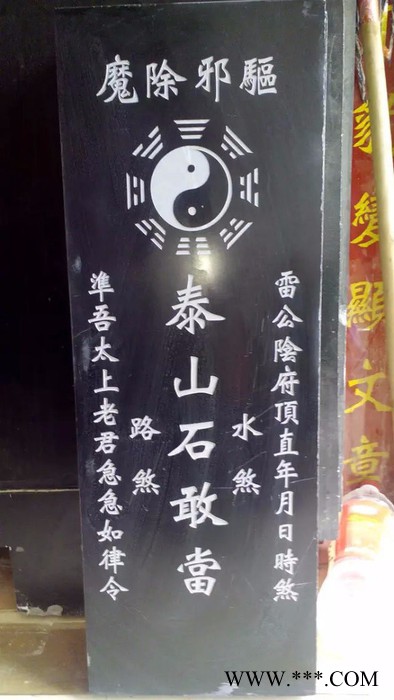 驅邪除魔
雷公陰府頂直年月日時煞
水煞
泰山石敢當
路煞
準吾太上老君急急如律令
變顯文章
www.***.COM